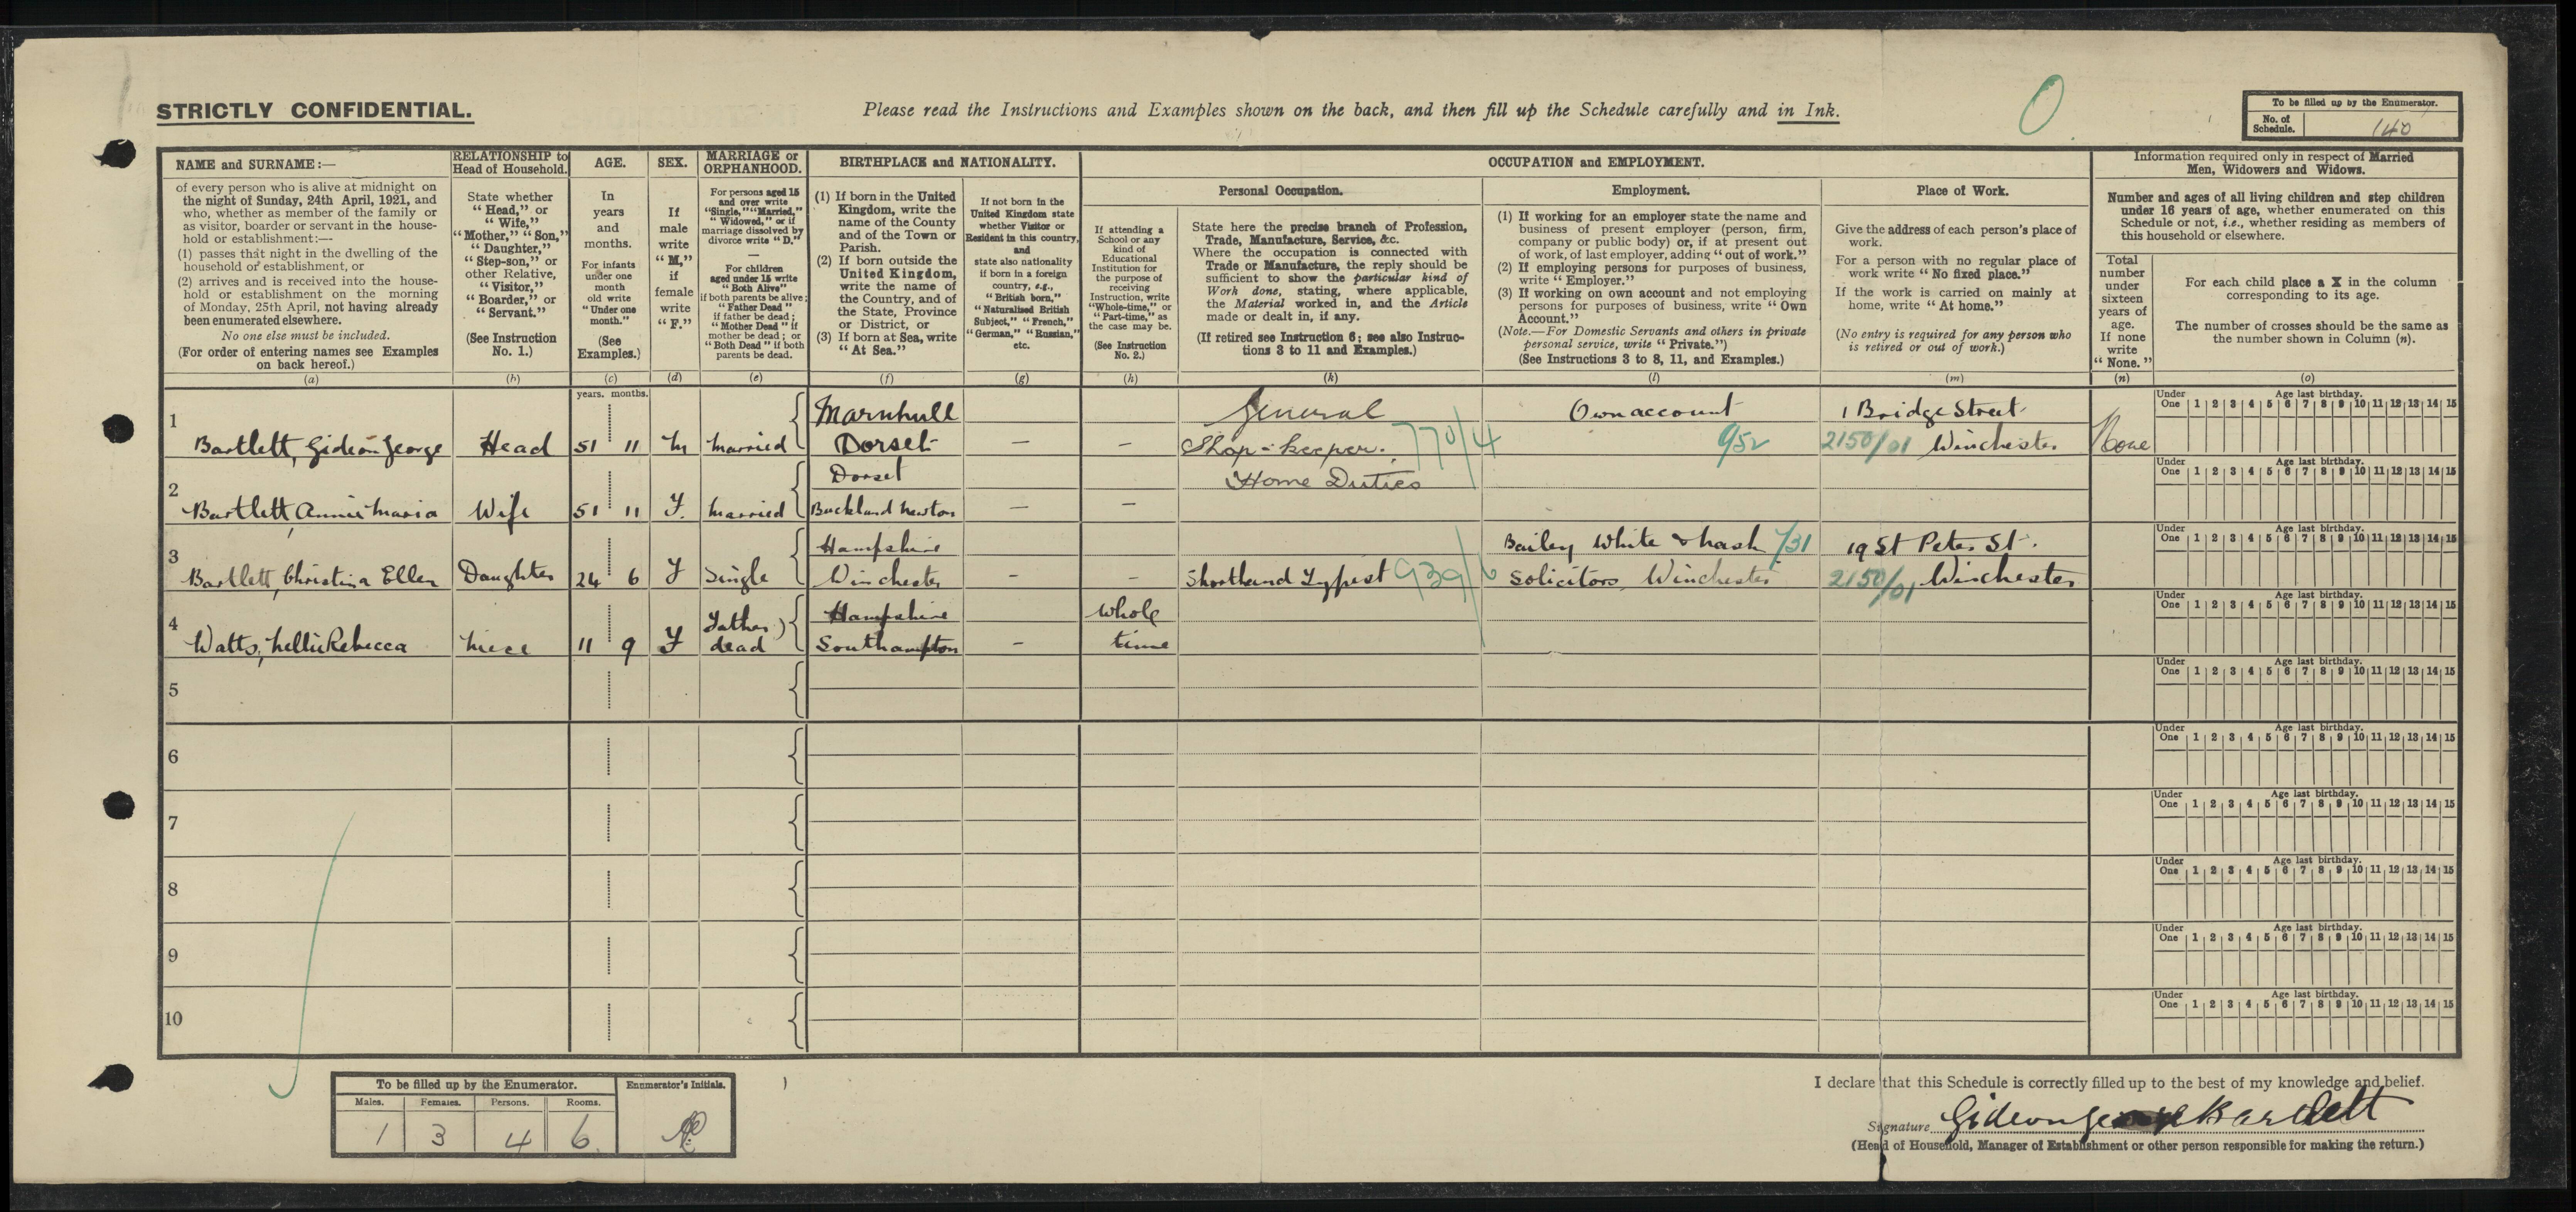 STRICTLY CONFIDENTIAL.
Please read the Instructions and Examples shown on the back, and then fill up the Schedule carefully and in Ink.
To be filled up by the Enumerator.
No. of Schedule. 140
NAME and SURNAME:—
of every person who is alive at midnight on
the night of Sunday, 24th April, 1921, and
who, whether as member of the family or
as visitor, boarder or servant in the house-
hold or establishment:—
(1) passes that night in the dwelling of the
household or establishment, or
(2) arrives and is received into the house-
hold or establishment on the morning
of Monday, 25th April, not having already
been enumerated elsewhere.
No one else must be included.
(For order of entering names see Examples
on back hereof.)
(a)
RELATIONSHIP to
Head of Household.
State whether
"Head," or
"Wife,"
"Mother," "Son,"
"Daughter,"
"Step-son," or
other Relative,
"Visitor,"
"Boarder," or
"Servant."
(See Instruction
No. 1.)
(b)
AGE.
In
years
and
months.
For infants
under one
month
old write
"Under one
month."
(See
Examples.)
(c)
SEX.
If
male
write
"M,"
if
female
write
"F."
(d)
MARRIAGE or
ORPHANHOOD.
For persons aged 15
and over write
"Single," "Married,"
"Widowed," or if
marriage dissolved by
divorce write "D."
—
For children
aged under 15 write
"Both Alive"
if both parents be alive;
"Father Dead"
if father be dead;
"Mother Dead" if
mother be dead; or
"Both Dead" if both
parents be dead.
(e)
BIRTHPLACE and NATIONALITY.
(1) If born in the United
Kingdom, write the
name of the County
and of the Town or
Parish.
(2) If born outside the
United Kingdom,
write the name of
the Country, and of
the State, Province
or District, or
(3) If born at Sea, write
"At Sea."
(f)
If not born in the
United Kingdom state
whether Visitor or
Resident in this country,
and
state also nationality
if born in a foreign
country, e.g.,
"British born,"
"Naturalised British
Subject," "French,"
"German," "Russian,"
etc.
(g)
OCCUPATION and EMPLOYMENT.
If attending a
School or any
kind of
Educational
Institution for
the purpose of
receiving
Instruction, write
"Whole-time," or
"Part-time," as
the case may be.
(See Instruction
No. 2.)
(h)
Personal Occupation.
State here the precise branch of Profession,
Trade, Manufacture, Service, &c.
Where the occupation is connected with
Trade or Manufacture, the reply should be
sufficient to show the particular kind of
Work done, stating, where applicable,
the Material worked in, and the Article
made or dealt in, if any.
(If retired see Instruction 6; see also Instruc-
tions 3 to 11 and Examples.)
(k)
Employment.
(1) If working for an employer state the name and
business of present employer (person, firm,
company or public body) or, if at present out
of work, of last employer, adding "out of work."
(2) If employing persons for purposes of business,
write "Employer."
(3) If working on own account and not employing
persons for purposes of business, write "Own
Account."
(Note.—For Domestic Servants and others in private
personal service, write "Private.")
(See Instructions 3 to 8, 11, and Examples.)
(l)
Place of Work.
Give the address of each person's place of
work.
For a person with no regular place of
work write "No fixed place."
If the work is carried on mainly at
home, write "At home."
(No entry is required for any person who
is retired or out of work.)
(m)
Information required only in respect of Married
Men, Widowers and Widows.
Number and ages of all living children and step children
under 16 years of age, whether enumerated on this
Schedule or not, i.e., whether residing as members of
this household or elsewhere.
Total
number
under
sixteen
years of
age.
If none
write
"None."
(n)
For each child place a X in the column
corresponding to its age.
The number of crosses should be the same as
the number shown in Column (n).
(o)
years. months.
1
Bartlett, Gideon George Head 51 11 M Married Marnhull Dorset — — General Shop-keeper. 770/4 Own account 952 1 Bridge Street 2150/01 Winchester None
Under One Age last birthday. 1 2 3 4 5 6 7 8 9 10 11 12 13 14 15
2
Bartlett Annie Maria Wife 51 11 F. Married Dorset Buckland Newton — — Home Duties
Under One Age last birthday. 1 2 3 4 5 6 7 8 9 10 11 12 13 14 15
3
Bartlett, Christina Ellen Daughter 24 6 F Single Hampshire Winchester - - Shorthand Typist 939/6 Bailey White & Nash 731 Solicitors, Winchester 19 St Peter St. 2150/01 Winchester
Under One Age last birthday. 1 2 3 4 5 6 7 8 9 10 11 12 13 14 15
4
Watts, Nellie Rebecca Niece 11 9 F Father dead Hampshire Southampton - Whole time
Under One Age last birthday. 1 2 3 4 5 6 7 8 9 10 11 12 13 14 15
5
Under One Age last birthday. 1 2 3 4 5 6 7 8 9 10 11 12 13 14 15
6
Under One Age last birthday. 1 2 3 4 5 6 7 8 9 10 11 12 13 14 15
7
Under One Age last birthday. 1 2 3 4 5 6 7 8 9 10 11 12 13 14 15
8
Under One Age last birthday. 1 2 3 4 5 6 7 8 9 10 11 12 13 14 15
9
Under One Age last birthday. 1 2 3 4 5 6 7 8 9 10 11 12 13 14 15
10
Under One Age last birthday. 1 2 3 4 5 6 7 8 9 10 11 12 13 14 15
To be filled up by the Enumerator.
Males. Females. Persons. Rooms.
1 3 4 6
Enumerator's Initials.
I declare that this Schedule is correctly filled up to the best of my knowledge and belief.
Signature Gideon George Bartlett
(Head of Household, Manager of Establishment or other person responsible for making the return.)